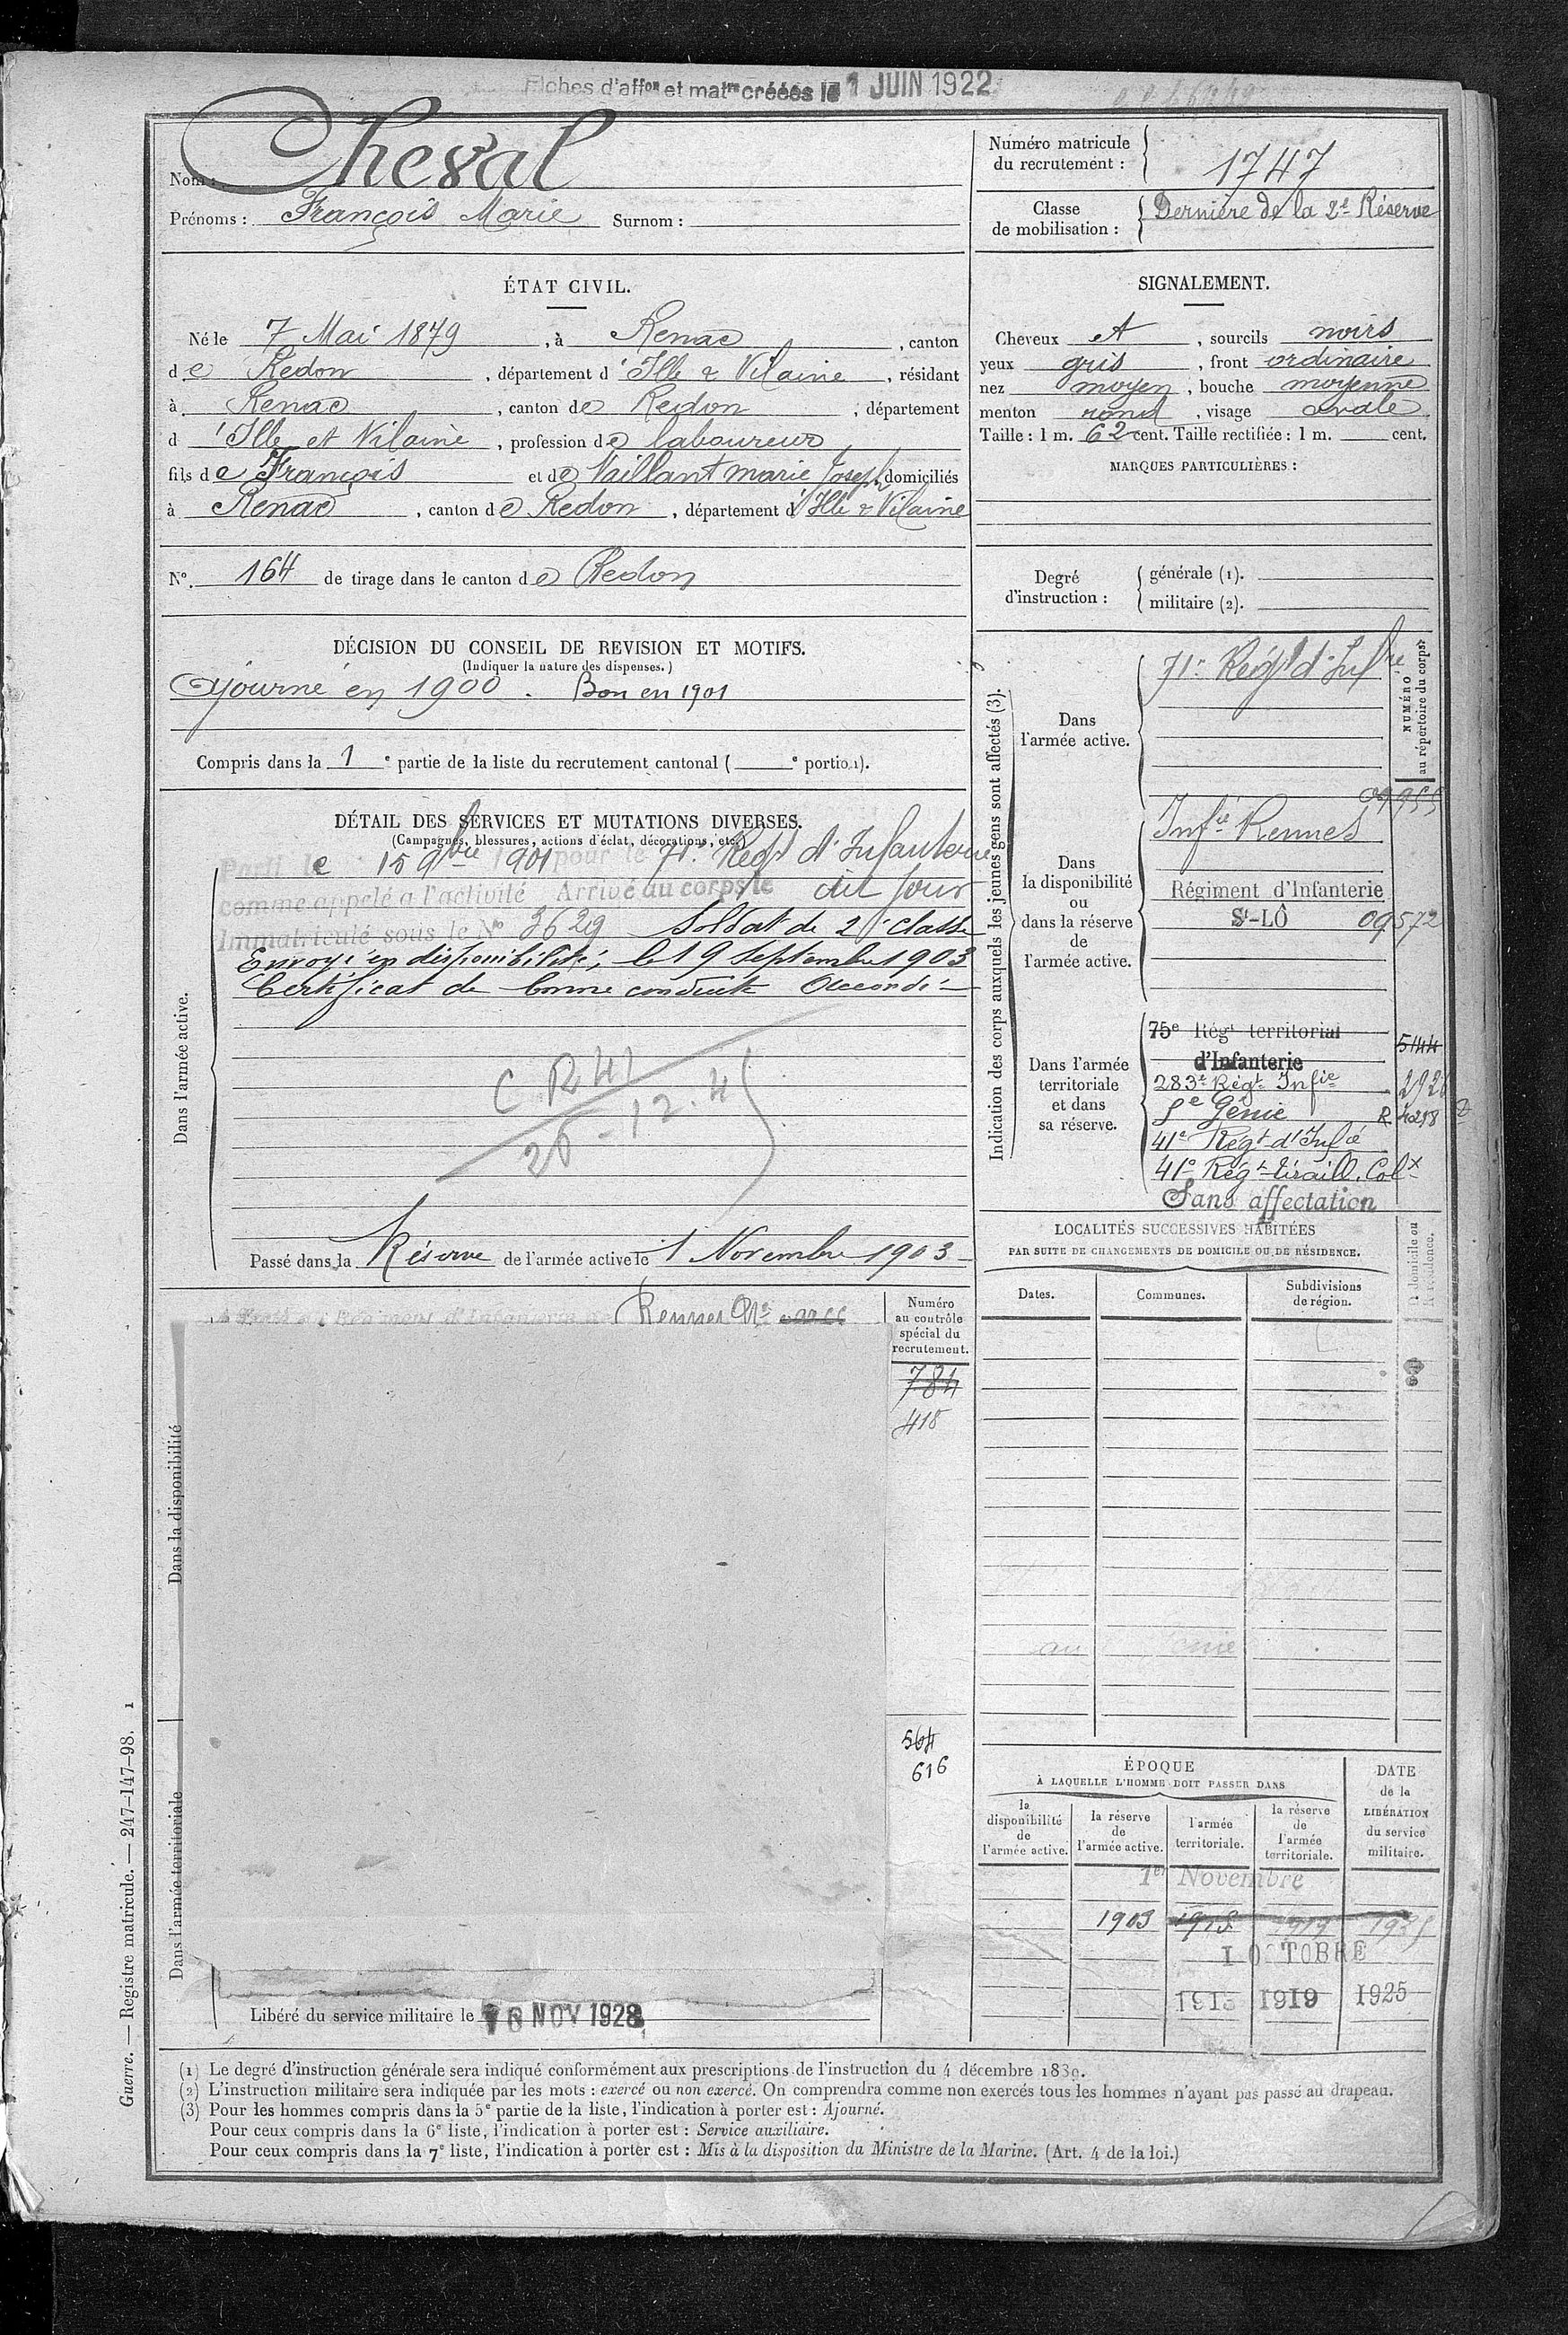 Fiches d'affon et matre créées le 1 JUIN 1922
Nom : Cheval
Prénoms : François Marie Surnom :
Numéro matricule du recrutement : 1747
Classe de mobilisation : Dernière de la 2e Réserve
ÉTAT CIVIL.
Né le 7 Mai 1879, à Renac, canton
de Redon, département d'Ille & Vilaine, résidant
à Renac, canton de Redon, département
d'Ille et Vilaine, profession de laboureur
fils de François et de Vaillant marie Joseph domiciliés
à Renac, canton de Redon, département d'Ille & Vilaine
No. 164 de tirage dans le canton de Redon
SIGNALEMENT.
Cheveux et, sourcils noirs
yeux gris, front ordinaire
nez moyen, bouche moyenne
menton rond, visage ovale
Taille : 1 m. 62 cent. Taille rectifiée : 1 m. cent.
MARQUES PARTICULIÈRES :
Degré d'instruction :
générale (1).
militaire (2).
DÉCISION DU CONSEIL DE REVISION ET MOTIFS.
(Indiquer la nature des dispenses.)
Ajourné en 1900. Bon en 1901
Compris dans la 1e partie de la liste du recrutement cantonal ( e portion).
DÉTAIL DES SERVICES ET MUTATIONS DIVERSES.
(Campagnes, blessures, actions d'éclat, décorations, etc.)
Dans l'armée active.
Parti le 15 9bre 1901 pour le 71e Regt d'Infanterie
comme appelé à l'activité Arrivé au corps le dit jour
Immatriculé sous le No 3629 Soldat de 2e classe
Envoyé en disponibilité, le 19 Septembre 1903
Certificat de bonne conduite Accordé
C R 41
Passé dans la Réserve de l'armée active le 1 Novembre 1903
Rennes
Numéro
au contrôle
spécial du
recrutement.
784
418
564
616
Dans la disponibilité
Dans l'armée territoriale
Libéré du service militaire le NOV 1928
Indication des corps auxquels les jeunes gens sont affectés (3).
NUMÉRO
au répertoire du corps.
Dans
l'armée active.
71e Régt d'Infre
Dans
la disponibilité
ou
dans la réserve
de
l'armée active.
Infie Rennes
Régiment d'Infanterie
St-LÔ 09572
Dans l'armée
territoriale
et dans
sa réserve.
75e Régt territorial
d'Infanterie 544
283e Régt Infie
Génie
41e Régt d'Infie
41e Régt tiraill. Colx
Sans affectation
LOCALITÉS SUCCESSIVES HABITÉES
PAR SUITE DE CHANGEMENTS DE DOMICILE OU DE RÉSIDENCE.
Dates. Communes. Subdivisions
de région.
ÉPOQUE
À LAQUELLE L'HOMME DOIT PASSER DANS
la
disponibilité
de
l'armée active.
la réserve
de
l'armée active.
l'armée
territoriale.
la réserve
de
l'armée
territoriale.
DATE
de la
LIBÉRATION
du service
militaire.
1er Novembre
1903
1 OCTOBRE
1913 1919 1925
(1) Le degré d'instruction générale sera indiqué conformément aux prescriptions de l'instruction du 4 décembre 1889.
(2) L'instruction militaire sera indiquée par les mots : exercé ou non exercé. On comprendra comme non exercés tous les hommes n'ayant pas passé au drapeau.
(3) Pour les hommes compris dans la 5e partie de la liste, l'indication à porter est : Ajourné.
Pour ceux compris dans la 6e liste, l'indication à porter est : Service auxiliaire.
Pour ceux compris dans la 7e liste, l'indication à porter est : Mis à la disposition du Ministre de la Marine. (Art. 4 de la loi.)
Guerre. — Registre matricule. — 247-147-98. 1